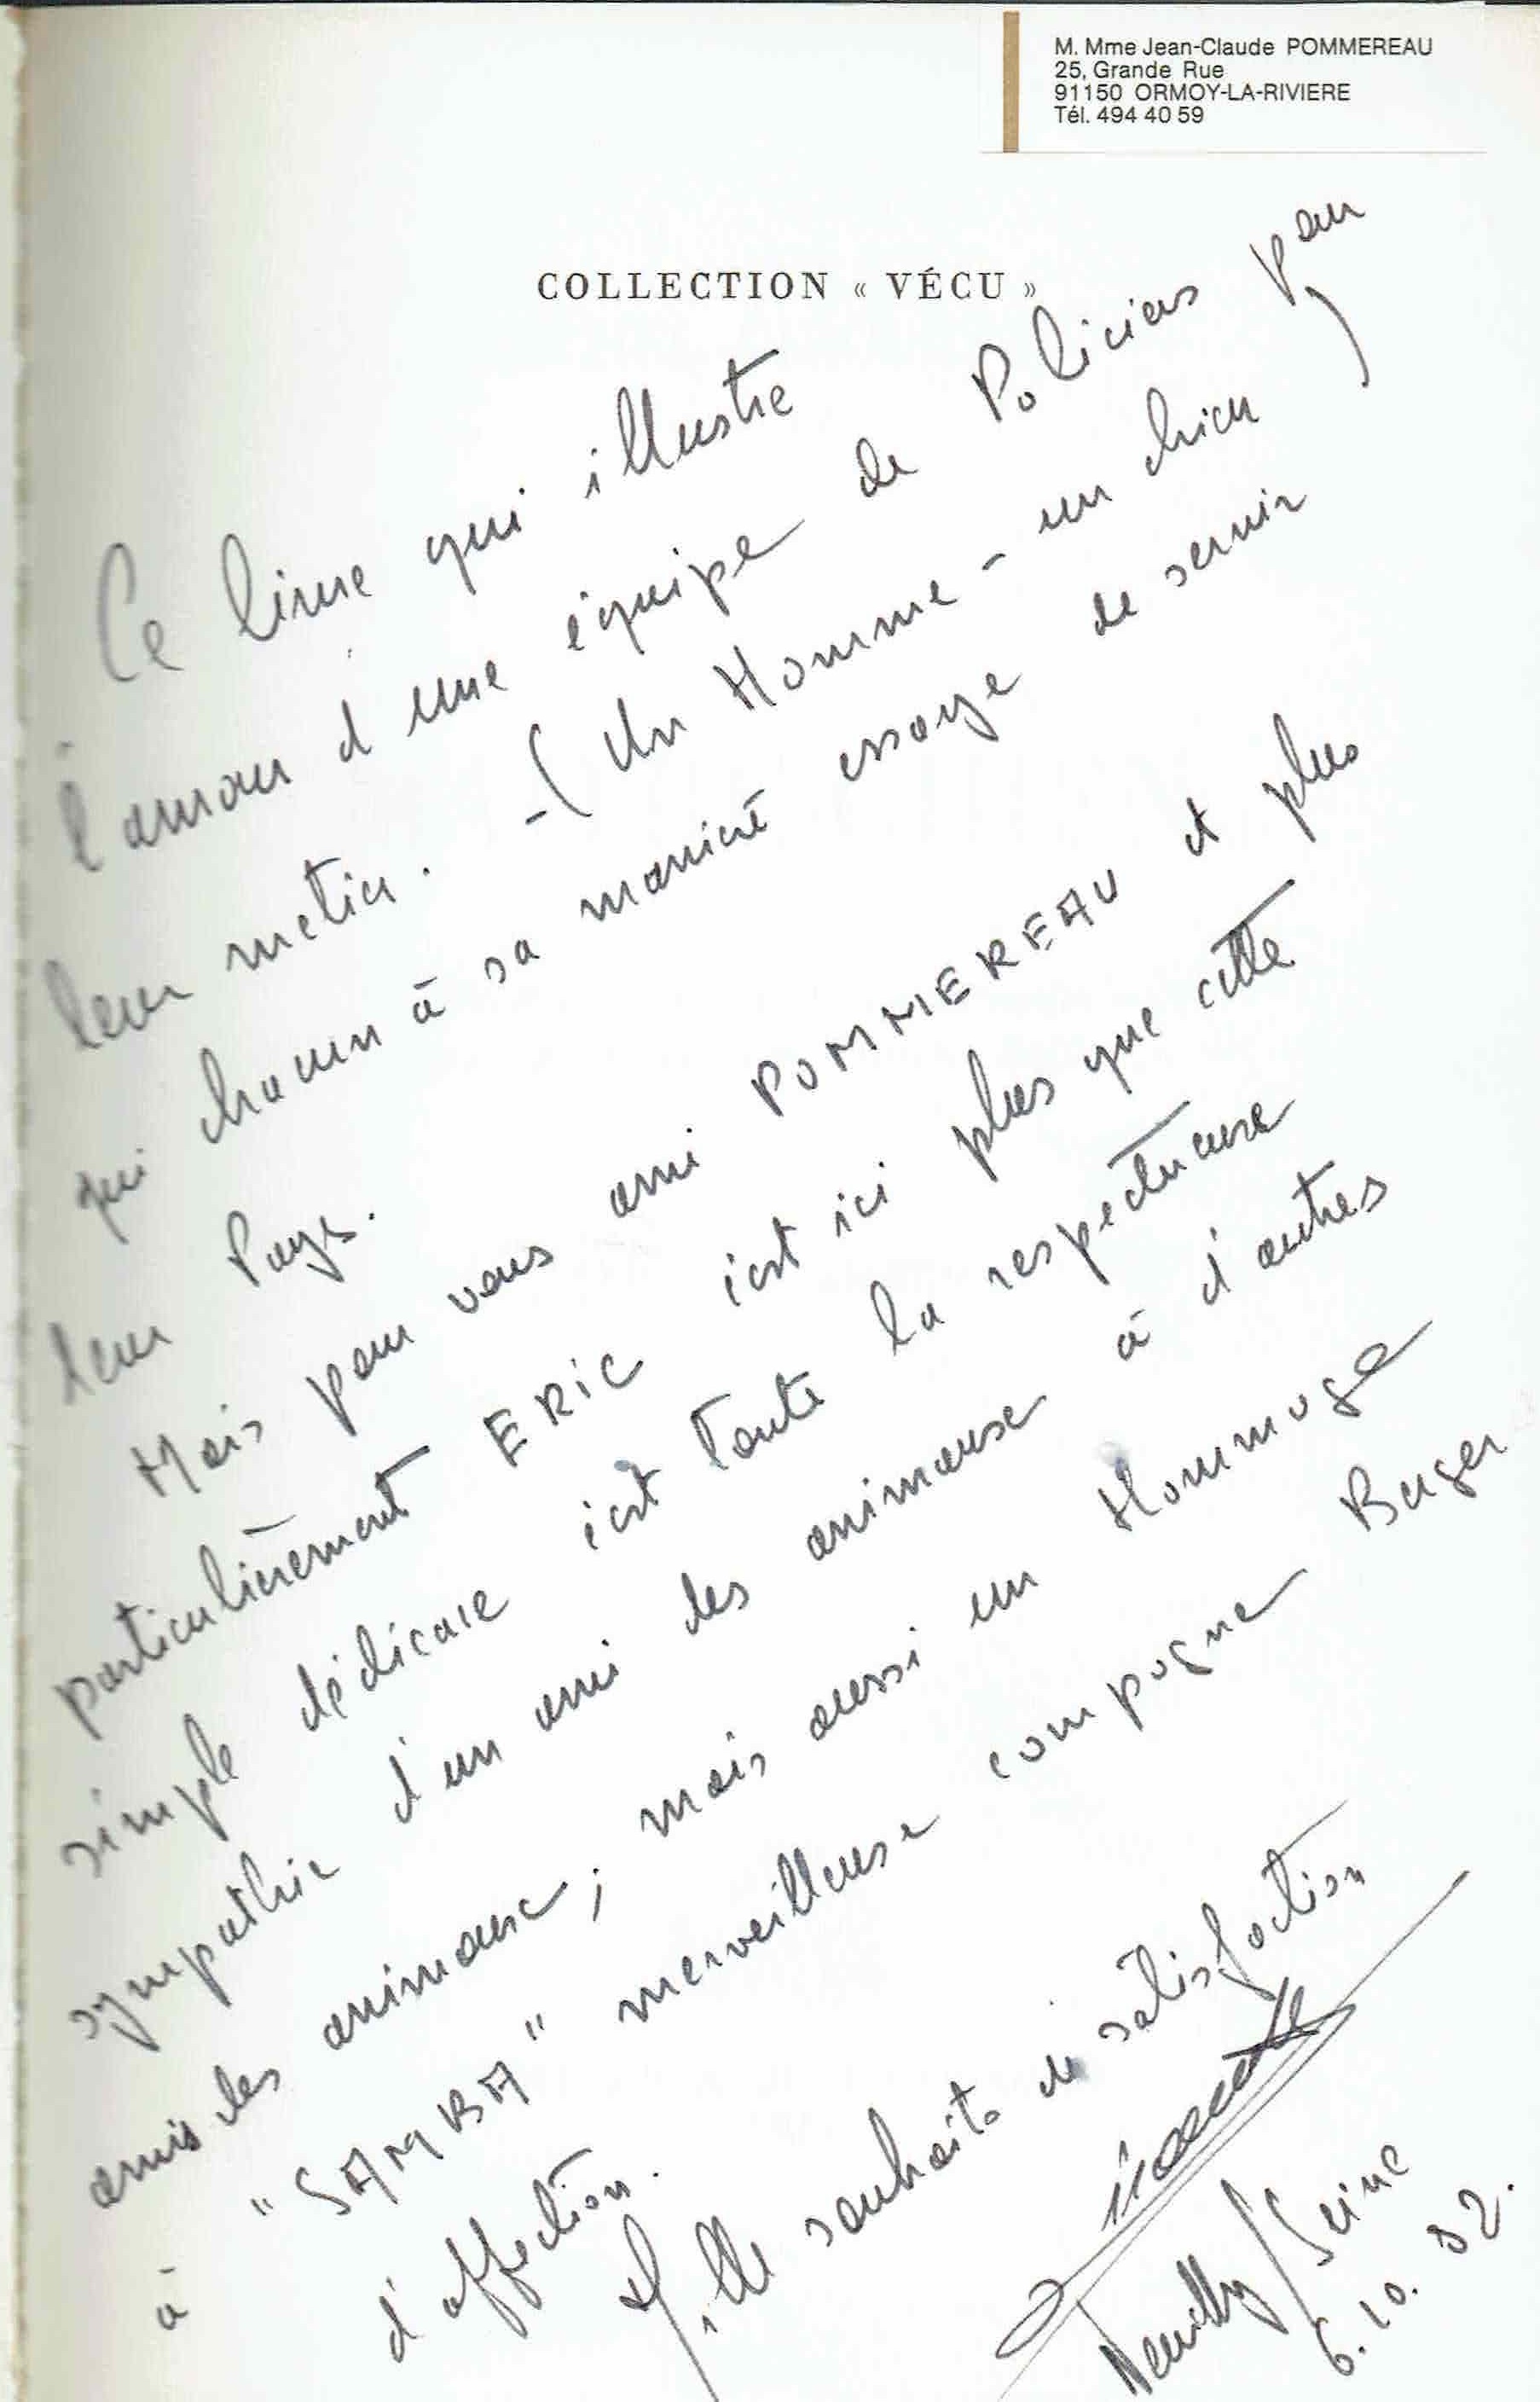 M. Mme Jean-Claude POMMEREAU
25, Grande Rue
91150 ORMOY-LA-RIVIERE
Tél. 494 40 59
COLLECTION « VÉCU »
Ce livre qui illustre
l'amour d'une équipe de Policiers pour
leur metier. -( Un Homme - un chien )
qui chacun à sa manière essaye de servir
leur Pays.
Mais pour vous ami POMMEREAU et plus
particulièrement ERIC c'est ici plus que cette
simple dédicace c'est toute la respectueuse
sympathie d'un ami des animaux à d'autres
amis des animaux ; mais aussi un Hommage
à "SAMBA" merveilleuse compagne
d'affection.
Mille souhaits de satisfaction
Neuilly/Seine
6.10.82.